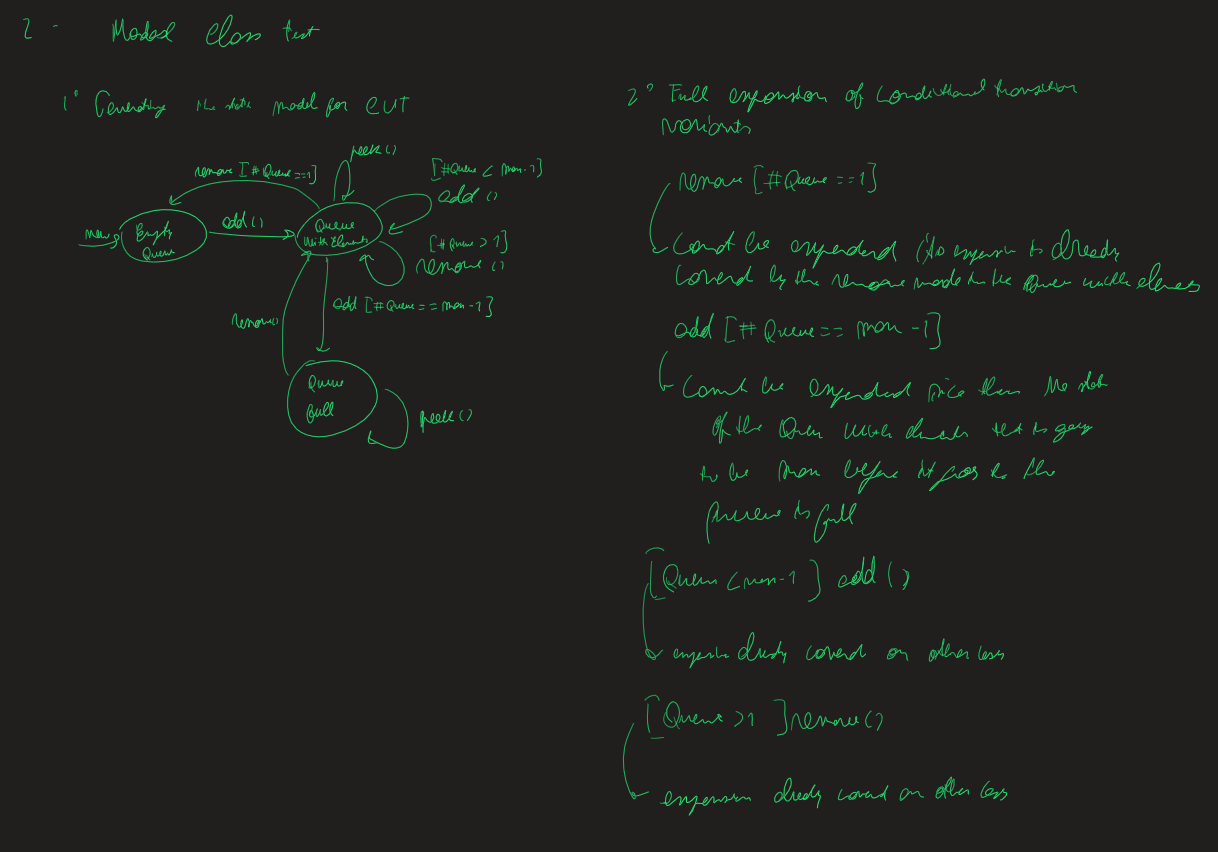 2 - Modal Class test
1° Generating the state model for CUT
peek()
remove [#Queue ==1]
[#Queue < max-1]
add ()
new
Empty
Queue
add()
Queue
With Elements
[#Queue > 1]
remove ()
add [#Queue == max -1]
remove()
Queue
full
peek ()
2° Full expansion of conditional transition
variants
remove [#Queue ==1]
expanded (its expansion is already
covered by the remove made in the Queue with elements
add [#Queue == max -1]
expanded since then the state
of the Queue with elements that is going
to be max before it goes to the
queue is full
[Queue < max-1] add ()
expansion already covered on other cases
[Queue >1] remove()
expansion already covered on other cases